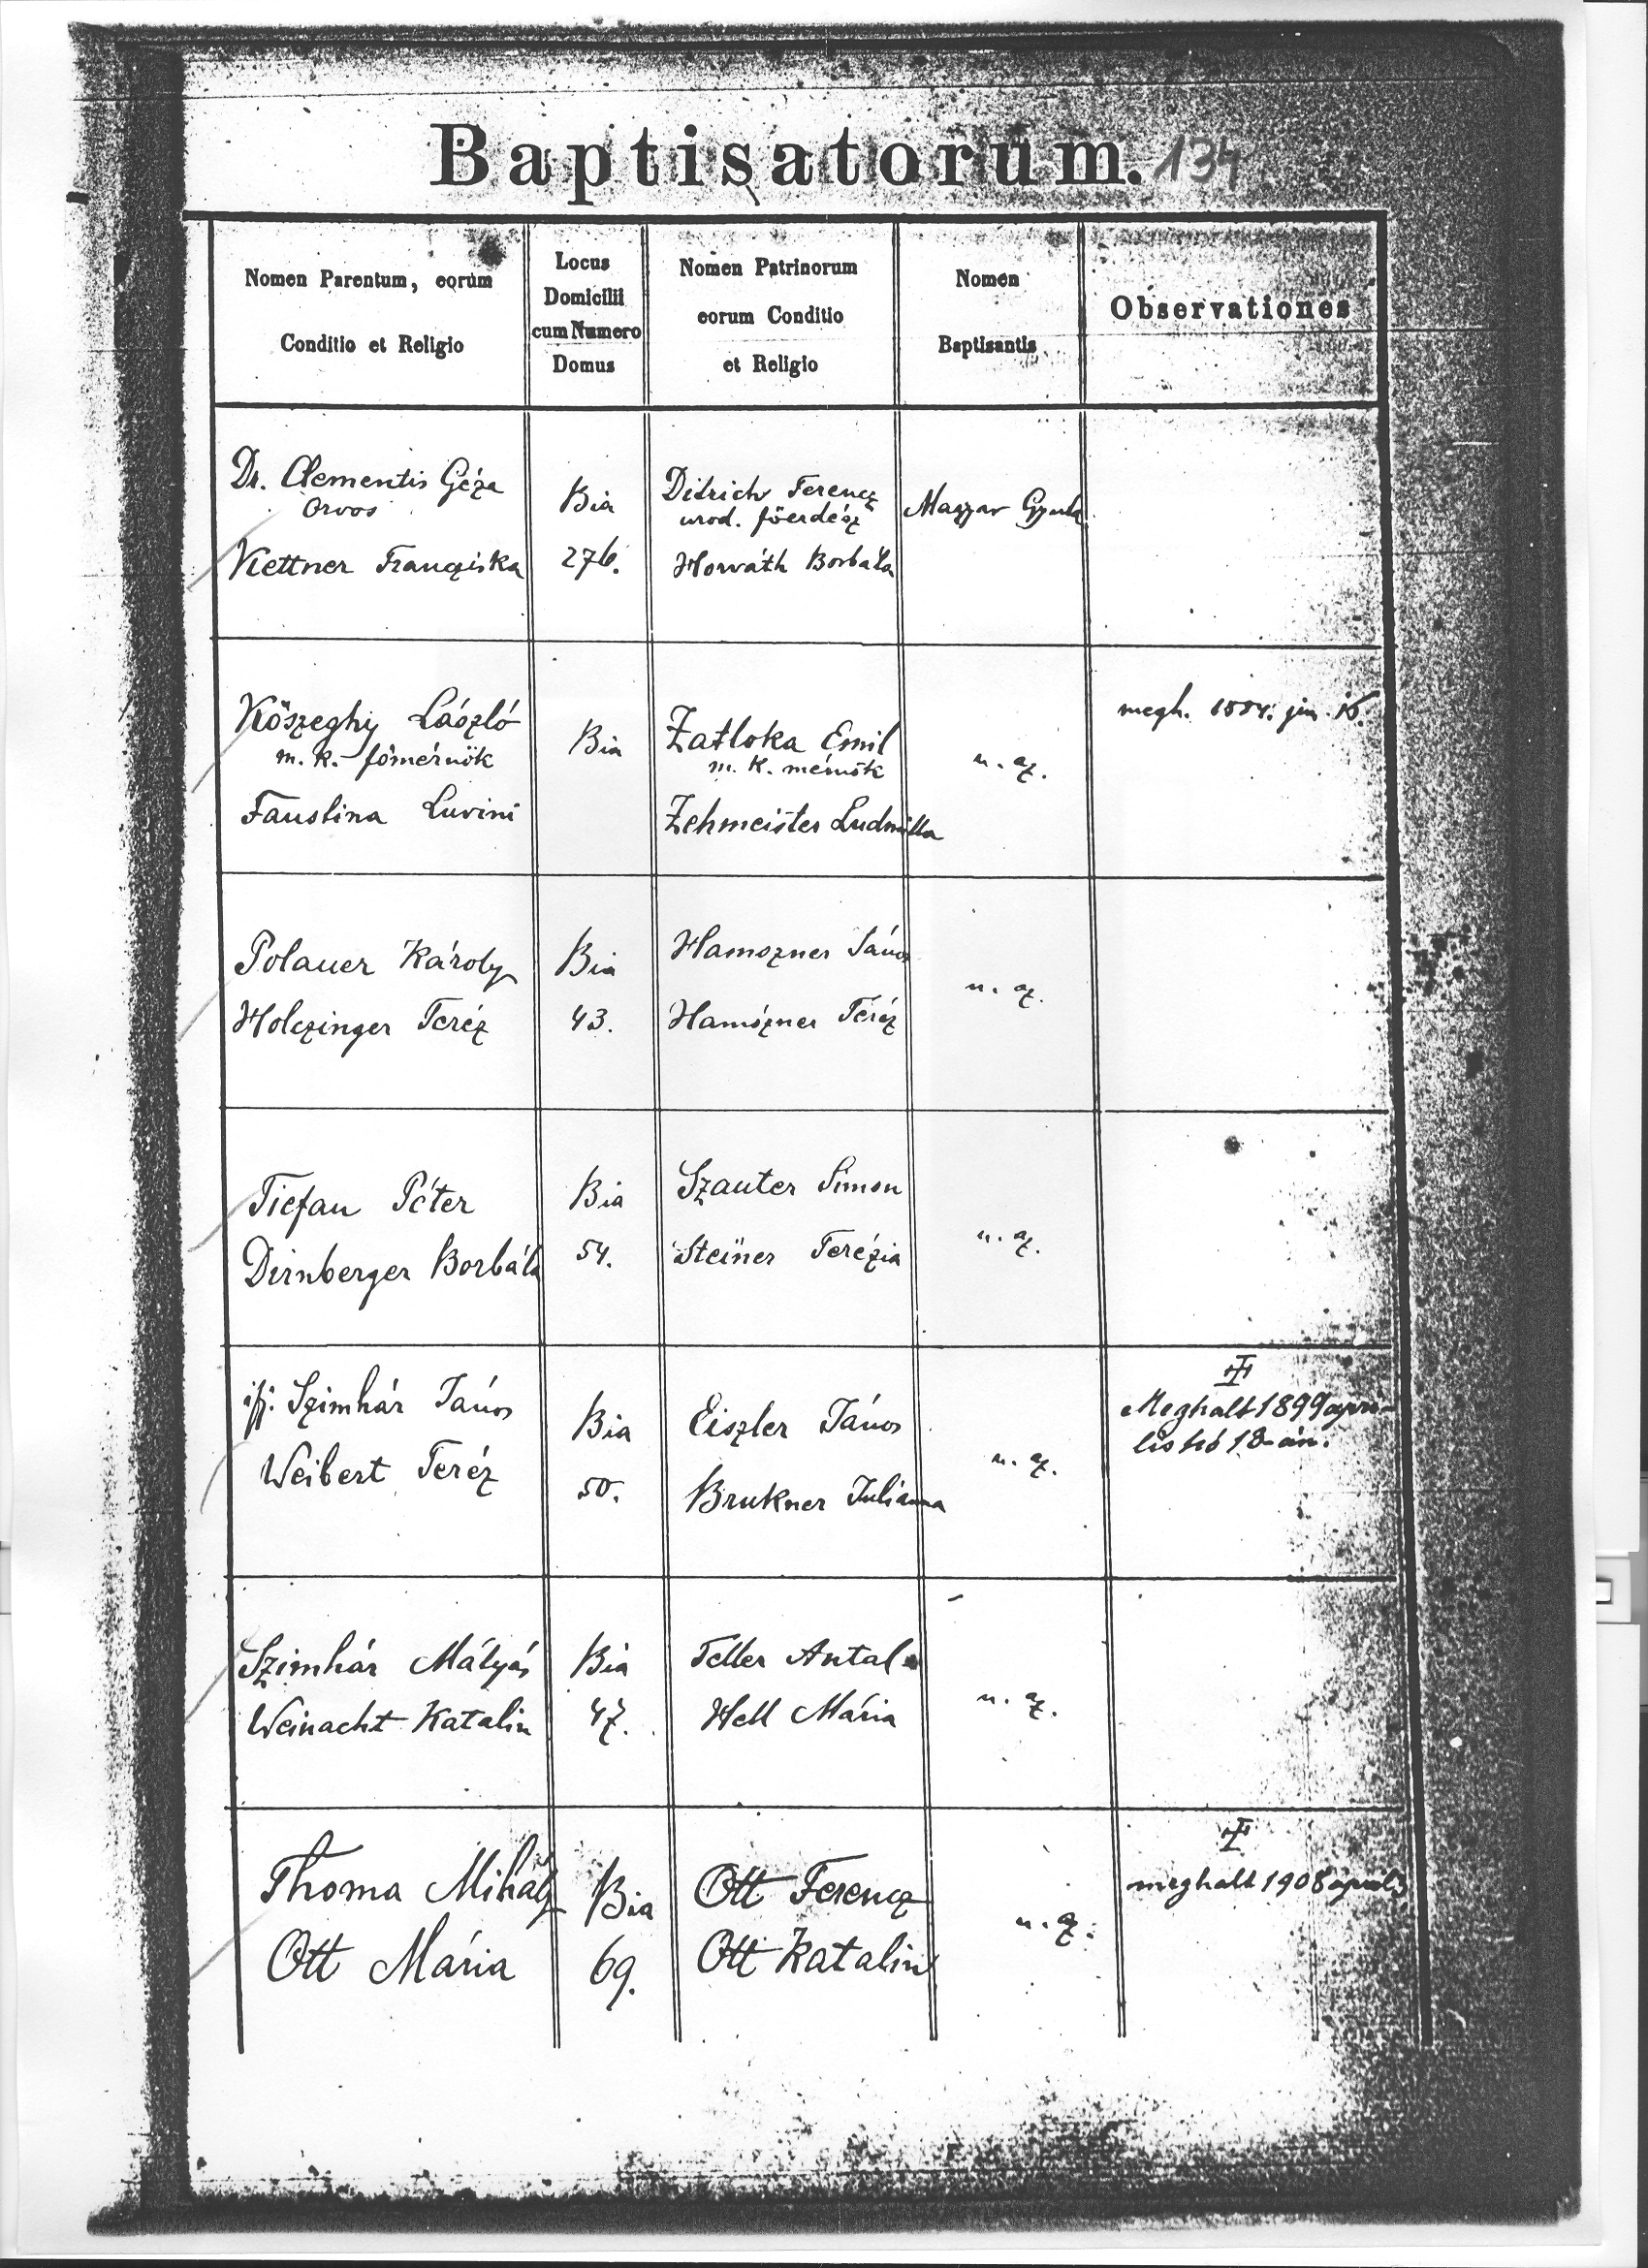 Baptisatorum. 134
Nomen Parentum, eorum
Conditio et Religio
Locus
Domicilii
cum Numero
Domus
Nomen Patrinorum
eorum Conditio
et Religio
Nomen
Baptisantis
Observationes
Dr. Clementis Géza
Orvos
Kettner Francziska
Bia
276.
Ditrich Ferencz
urod. főerdész
Horváth Borbála
Magyar Gyula
Kőszeghy László
m. k. főmérnök
Faustina Luvini
Bia
Zatloka Emil
m. k. mérnök
Zehmeister Ludmilla
u. az.
megh. 1884. jún. 16.
Polauer Károly
Holczinger Teréz
Bia
43.
Hamszner János
Hamszner Teréz
u. az.
Tiefau Péter
Dirnberger Borbála
Bia
54.
Szauter Simon
Steiner Terézia
u. az.
ifj. Szimhár János
Weibert Teréz
Bia
50.
Eiszler János
Brukner Julianna
u. az.
Meghalt 1899 ápri-
lis hó 18-án.
Szimhár Mátyás
Weinacht Katalin
Bia
47.
Teller Antal
Hell Mária
u. az.
Thoma Mihály
Ott Mária
Bia
69.
Ott Ferencz
Ott Katalin
u. az.
meghalt 1908 április